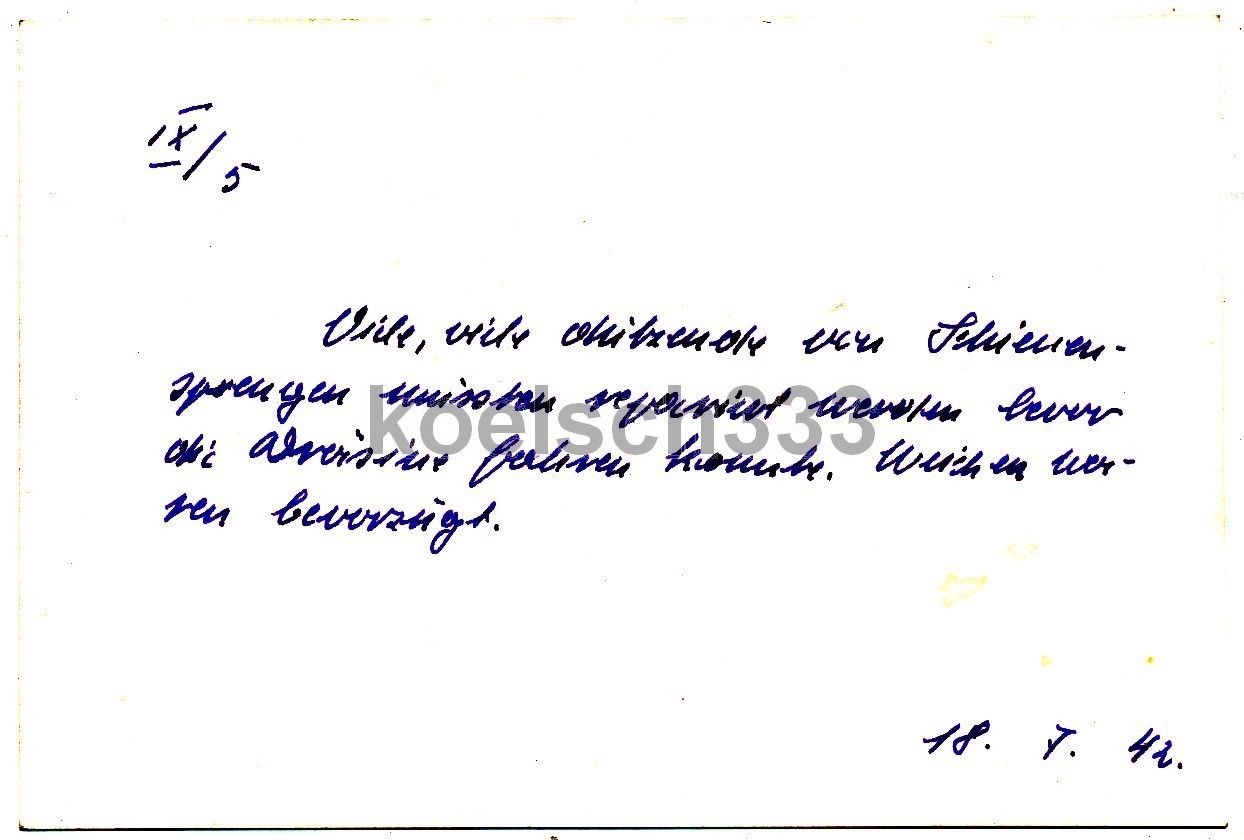 IX/5
Viele, viele dutzende von Schienen-
sprengen mussten repariert werden bevor
die Draisine fahren konnte. Weichen wa-
ren bevorzugt.
koelsch333
18. 7. 42.